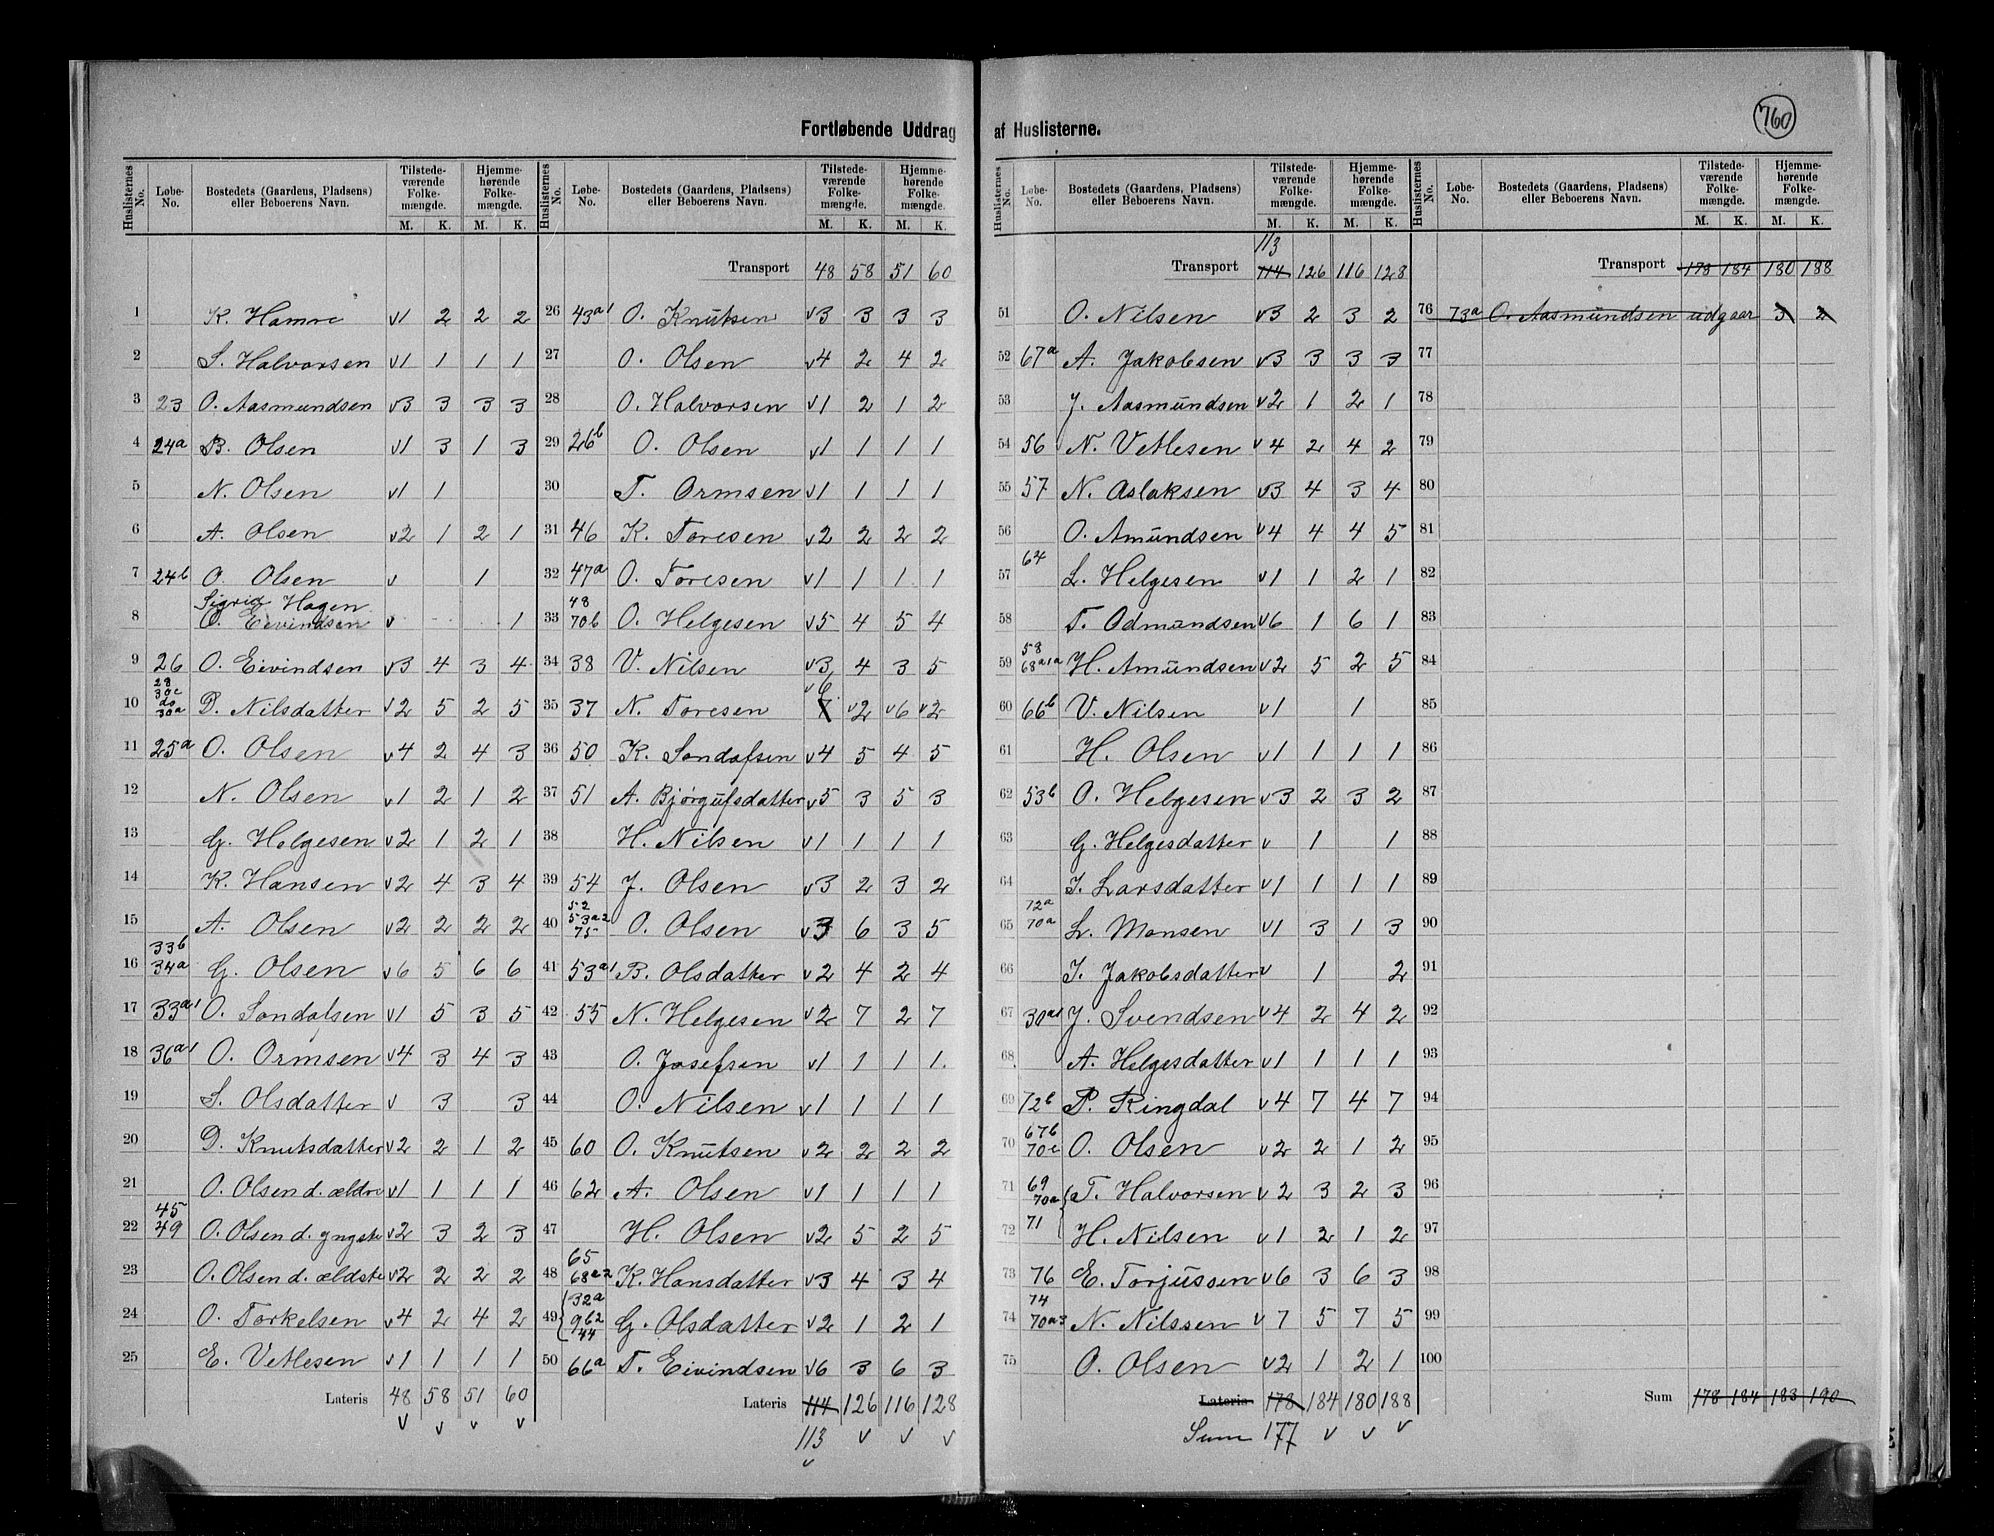 Fortløbende Uddrag af Huslisterne.
760
Huslisternes No. | Løbe-No. | Bostedets (Gaardens, Pladsens) eller Beboerens Navn. | Tilstedeværende Folkemængde. M. K. | Hjemmehørende Folkemængde. M. K.
1 K. Hamre v1 2 2 2
2 S. Halvorsen v1 1 1 1
3 23 O. Aasmundsen v3 3 3 3
4 24a B. Olsen v1 3 1 3
5 N. Olsen v1 1
6 A. Olsen v2 1 2 1
7 24b O. Olsen v 1
8 Sigrid Hagen
O. Eivindsen v 1
9 26 O. Eivindsen v3 4 3 4
10 28 30c do 30a D. Nilsdatter v2 5 2 5
11 25a O. Olsen v4 2 4 3
12 N. Olsen v1 2 1 2
13 G. Helgesen v2 1 2 1
14 K. Hansen v2 4 3 4
15 A. Olsen v2 2 2 2
16 33b 34a G. Olsen v6 5 6 6
17 33a1 O. Sondalsen v1 5 3 5
18 36a1 O. Ormsen v4 3 4 3
19 S. Olsdatter v 3 3
20 D. Knutsdatter v2 2 1 2
21 O. Olsen d. ældre v1 1 1 1
22 45 49 O. Olsen d. yngste v2 3 2 3
23 O. Olsen d. ældste v2 2 2 2
24 O. Torkelsen v4 2 4 2
25 E. Vetlesen v1 1 1 1
Lateris 48 58 51 60
v v v v
Huslisternes No. | Løbe-No. | Bostedets (Gaardens, Pladsens) eller Beboerens Navn. | Tilstedeværende Folkemængde. M. K. | Hjemmehørende Folkemængde. M. K.
Transport 48 58 51 60
26 43a1 O. Knutsen v3 3 3 3
27 O. Olsen v4 2 4 2
28 O. Halvorsen v1 2 1 2
29 26b O. Olsen v1 1 1 1
30 T. Ormsen v1 1 1 1
31 46 K. Toresen v2 2 2 2
32 47a O. Toresen v1 1 1 1
33 48 70b O. Helgesen v5 4 5 4
34 38 V. Nilsen v3 4 3 5
35 37 N. Toresen v6 7 v2 v6 v2
36 50 K. Sondalsen v4 5 4 5
37 51 A. Bjørgulfsdatter v5 3 5 3
38 H. Nilsen v1 1 1 1
39 54 J. Olsen v3 2 3 2
40 52 53a2 75 O. Olsen v3 6 3 5
41 53a1 B. Olsdatter v2 4 2 4
42 55 N. Helgesen v2 7 2 7
43 O. Josefsen v1 1 1 1
44 O. Nilsen v1 1 1 1
45 60 O. Knutsen v2 2 2 2
46 62 A. Olsen v1 1 1 1
47 H. Olsen v2 5 2 5
48 65 68a2 K. Hansdatter v3 4 3 4
49 32a 962 44 G. Olsdatter v2 1 2 1
50 66a T. Eivindsen v6 3 6 3
Lateris 114 126 116 128
113 v v v
v
Huslisternes No. | Løbe-No. | Bostedets (Gaardens, Pladsens) eller Beboerens Navn. | Tilstedeværende Folkemængde. M. K. | Hjemmehørende Folkemængde. M. K.
113
Transport 114 126 116 128
51 O. Nilsen v3 2 3 2
52 67a A. Jakobsen v3 3 3 3
53 J. Aasmundsen v2 1 2 1
54 56 N. Vetlesen v4 2 4 2
55 57 N. Aslaksen v3 4 3 4
56 O. Amundsen v4 4 4 5
57 64 L. Helgesen v1 1 2 1
58 T. Odmundsen v6 1 6 1
59 58 68a1a H. Amundsen v2 5 2 5
60 66b V. Nilsen v1 1
61 H. Olsen v1 1 1 1
62 53b O. Helgesen v3 2 3 2
63 G. Helgesdatter v 1 1
64 I. Larsdatter v1 1 1 1
65 72a 70a L. Monsen v1 3 1 3
66 I. Jakobsdatter v 1 2
67 30a1 J. Svendsen v4 2 4 2
68 A. Helgesdatter v1 1 1 1
69 72b P. Ringdal v4 7 4 7
70 67b 70c O. Olsen v2 2 1 2
71 69 70a T. Halvorsen v2 3 2 3
72 71 H. Nilsen v1 2 1 2
73 76 E. Torjussen v6 3 6 3
74 74 70a3 N. Nilssen v7 5 7 5
75 O. Olsen v2 1 2 1
Lateris 178 184 180 188
Sum 177 v v v
Huslisternes No. | Løbe-No. | Bostedets (Gaardens, Pladsens) eller Beboerens Navn. | Tilstedeværende Folkemængde. M. K. | Hjemmehørende Folkemængde. M. K.
Transport 178 184 180 188
76 73a O. Aasmundsen udgaar 3 2
77
78
79
80
81
82
83
84
85
86
87
88
89
90
91
92
93
94
95
96
97
98
99
100
Sum 178 184 183 190